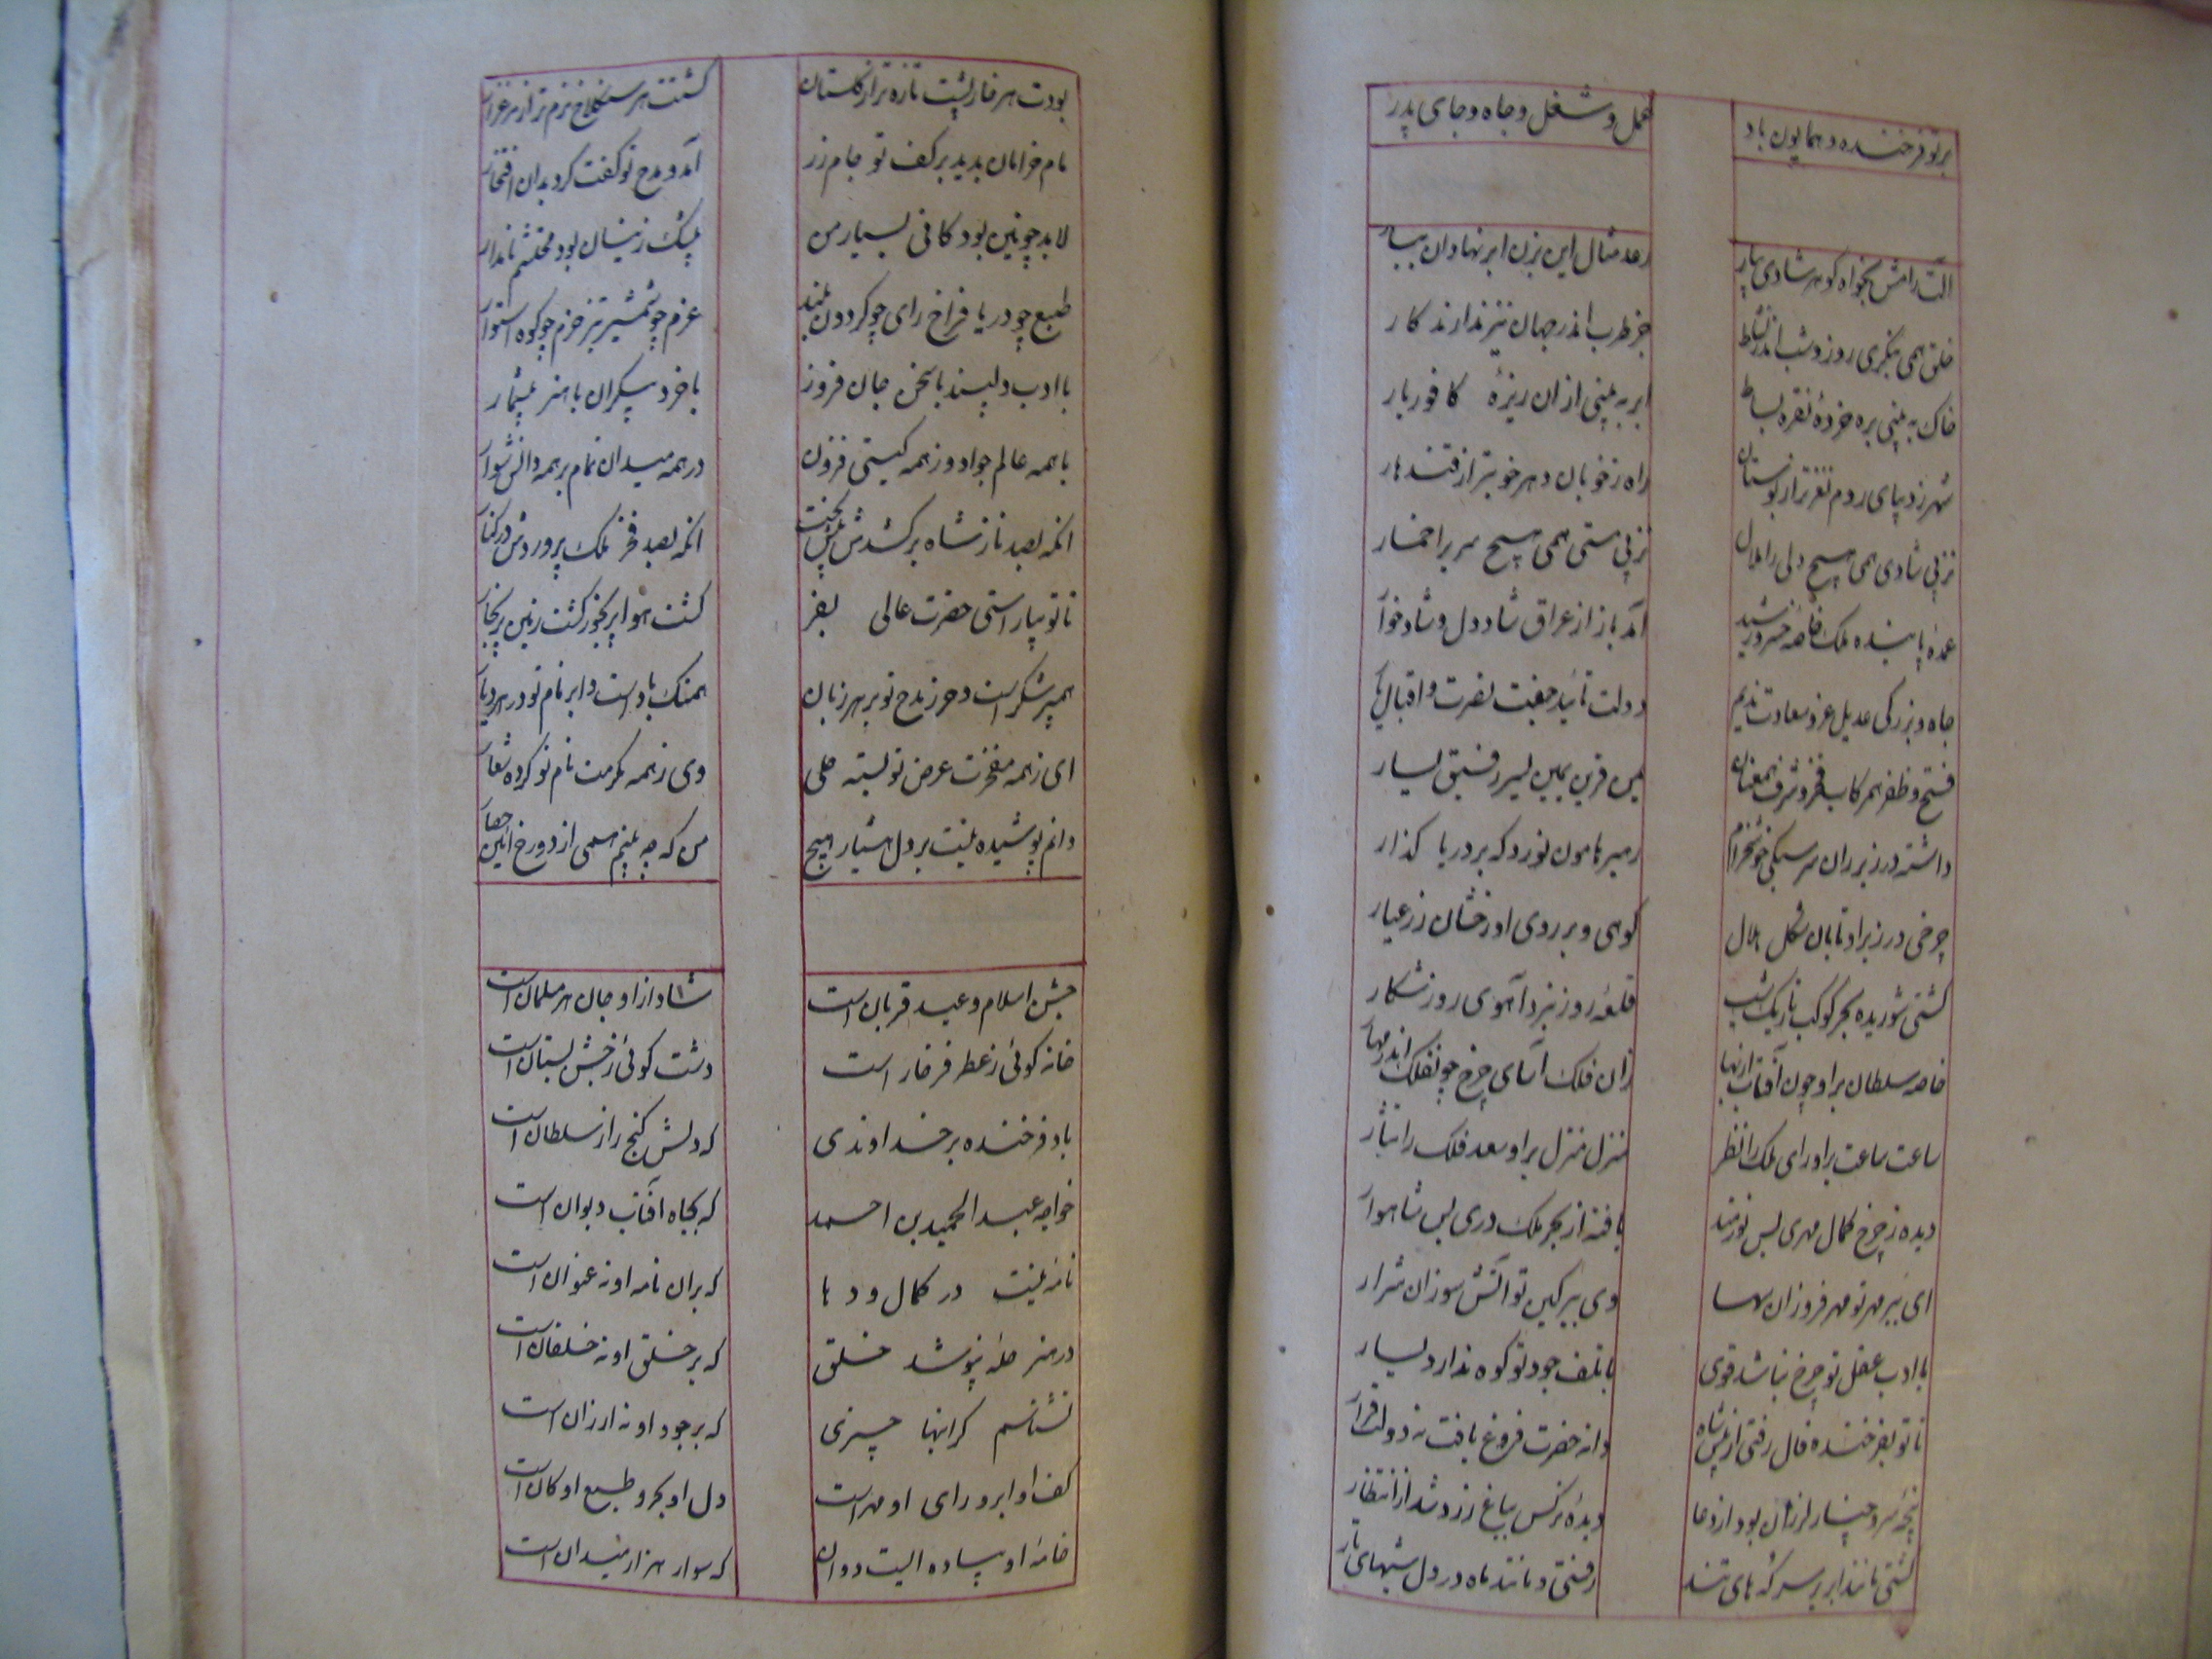 بر تو فرخنده و همایون باد عمل و شغل و جاه و جای پدر
آلت رامش بخواه گوهر شادی بیار رعد مثال این بزن ابر نهاد آن ببار
خلق همی بنگری روز و شب اندر نشاط جز طرب اندر جهان نیز ندارند کار
خاک به بینی بره خردهٔ نقره بساط ابر به بینی ازان ریزهٔ کافور بار
شهر ز دیبای روم نغزتر از بوستان راه ز خوبان دهر خوبتر از قندهار
نز پی شادی همی هیچ دلی را ملال نز پی مستی همی هیچ سر برا خمار
عمدهٔ پاینده ملک خاصهٔ خسرو رشید آمد باز از عراق شاد دل و شادخوار
جاه و بزرکی عدیل عز و سعادت ندیم دولت تائید جفت نصرت و اقبال یار
فتح و ظفر همرکاب فخر و شرف همعنان یمن قرین یمین یسر رفیق یسار
داشته در زیر ران مرسبکی خوشخرام رهبر هامون نورد که بر دریا کذار
چرخی در زیر او تابان شکل هلال کوهی و بر روی او رخشان زر عیار
کشتی شوریده بحر کوکب تاریک شب قلعهٔ روز نبرد آهوی روز شکار
خاصه سلطان براو چون آفتاب زان فلک آسای چرخ چو فلک اندر
ساعت ساعت براو رای ملک را نظر منزل منزل براو سعد فلک را نثار
دیده ز چرخ کمال مهری بس نورمند یافته از بحر ملک دری بس شاهوار
ای بر مهر تو مهر فروزان سها وی بر کین تو آتش سوزان شرار
با ادب عقل تو چرخ نباشد قوی با تلف جود تو کوه ندارد یسار
تا تو بفرخنده فال رفتی از پیش شاه و انه حضرت فروغ یافت نه دولت قرار
پنجهٔ سرو و چنار لرزان بود از دعا دیدهٔ نرکس بباغ زرد شد از انتظار
کشتی مانند ابر بر سر که های تند رفتی و مانند ماه در دل شبهای تار
بودت هر خار پشت تازه تر از کلستان کشتت هر سنکلاخ نرم تر از مرغزار
مام خرامان بدید برکف تو جام زر آمد و مدح تو کفت کرد بدان افتخار
لابد چونین بود کافی بسیار من بیشک زینسان بود محتشم نامدار
طبع چو دریا فراخ رای چو کردون بلند عزم چو شمشیر تیز حزم چو کوه استوار
با ادب دلپسند با سخن جان فروز با خرد بیکران با هنر بیشمار
با همه عالم جواد وز همه کیتی فزون در همه میدان تمام بر همه دانش سوار
انکه بصد ناز شاه برکشدش پیش تخت انکه بصد فخر ملک پروردش در کنار
تا تو بیاراستی حضرت عالی بفر کشت هوا پر بخور کشت زمین پر نکار
همبر شکر است و حرز مدح تو بر هر زبان همتک باد است و ابر نام تو در هر دیار
ای ز همه مفخرت عرض تو بسته حلی وی ز همه مکرمت نام تو کرده شعار
دانم پوشیده نیست بر دل هشیار هیچ من که چه بینم همی از دورخ این حصار
جشن اسلام و عید قربان است شاد از او جان هر مسلمان است
خانه کوئی ز عطر فرخار است دشت کوئی ز خبش بستان است
باد فرخنده بر خداوندی که دلش کنج راز سلطان است
خواجه عبد الحمید بن احمد که بجاه آفتاب دیوان است
نامهٔ نیست در کمال و دها که بران نامه او نه عنوان است
در هنر حله نپوشد خلق که بر خلق او نه خلقان است
نشناسم کرانبها چیزی که بر جود او نه ارزان است
کف او ابر و رای او مهر است دل او بحر و طبع او کان است
خامهٔ او پیاده ایست دوان که سوار هزار میدان است